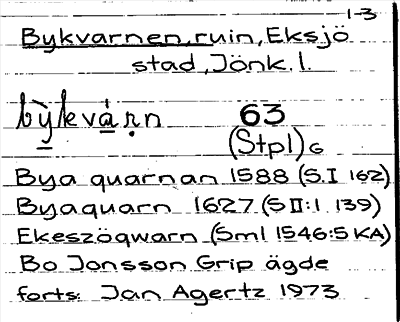 1-3
Bykvarnen, ruin, Eksjö
stad, Jönk. l.
bỳkvàṛn 63
(Stpl) G
Bya quarnan 1588 (S.I 162)
Byaquarn 1627 (S II:1 139)
Ekeszöqwarn (Sml 1546:5 KA)
Bo Jonsson Grip ägde
forts: Jan Agertz 1973